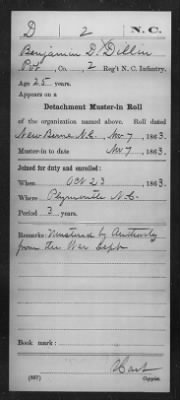 D 2 N.C.
Benjamin D. Dillin
Pvt, Co. , 2 Reg't N. C. Infantry.
Age 25 years.
Appears on a
Detachment Muster-in Roll
of the organization named above. Roll dated
New Berne N.C. Nov 7, 1863.
Muster-in to date Nov 7, 1863.
Joined for duty and enrolled:
When Oct 23, 1863.
Where Plymouth N.C.
Period 3 years.
Remarks: Mustered by Authority
from the War Dept
Book mark:
(337) Copyist.